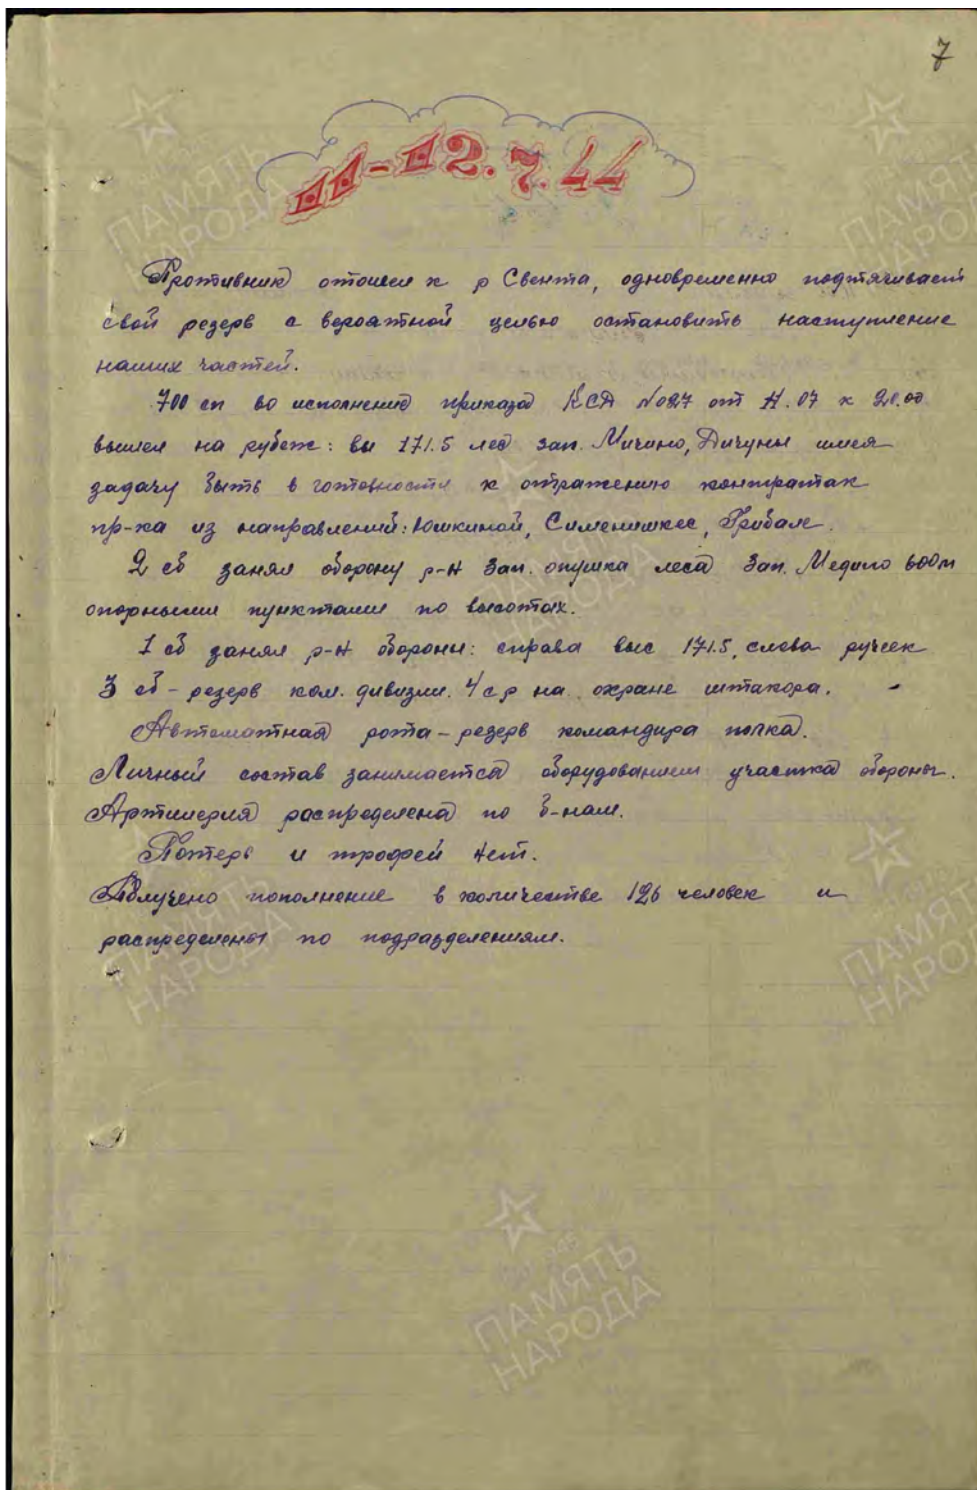 7
11-12.7.44
Противник отошел к р Свента, одновременно подтягивает
свой резерв с вероятной целью остановить наступление
наших частей.
700 сп во исполнение приказа КСД №027 от 11.07 к 20.00
вышел на рубеж: вы 171.5 лес зап. Мичино, Дичуны имея
задачу быть в готовности к отражению контратак
пр-ка из направлений: Юшкиной, Сименишкес, Грибале.
2 сб занял оборону р-н зап. опушка леса зап. Медино 600м
опорными пунктами по высотах.
1 сб занял р-н обороны: справа выс 171.5, слева ручеек
3 сб - резерв ком. дивизии. 4 ср на охране штакора.
Автоматная рота - резерв командира полка.
Личный состав занимается оборудованием участка обороны.
Артилерия распределена по б-нам.
Потерь и трофей нет.
Получено пополнение в количестве 126 человек и
распределены по подразделениям.
ПАМЯТЬ
НАРОДА
ПАМЯТЬ
НАРОДА
ПАМЯТЬ
НАРОДА
ПАМЯТЬ
НАРОДА
ПАМЯТЬ
НАРОДА